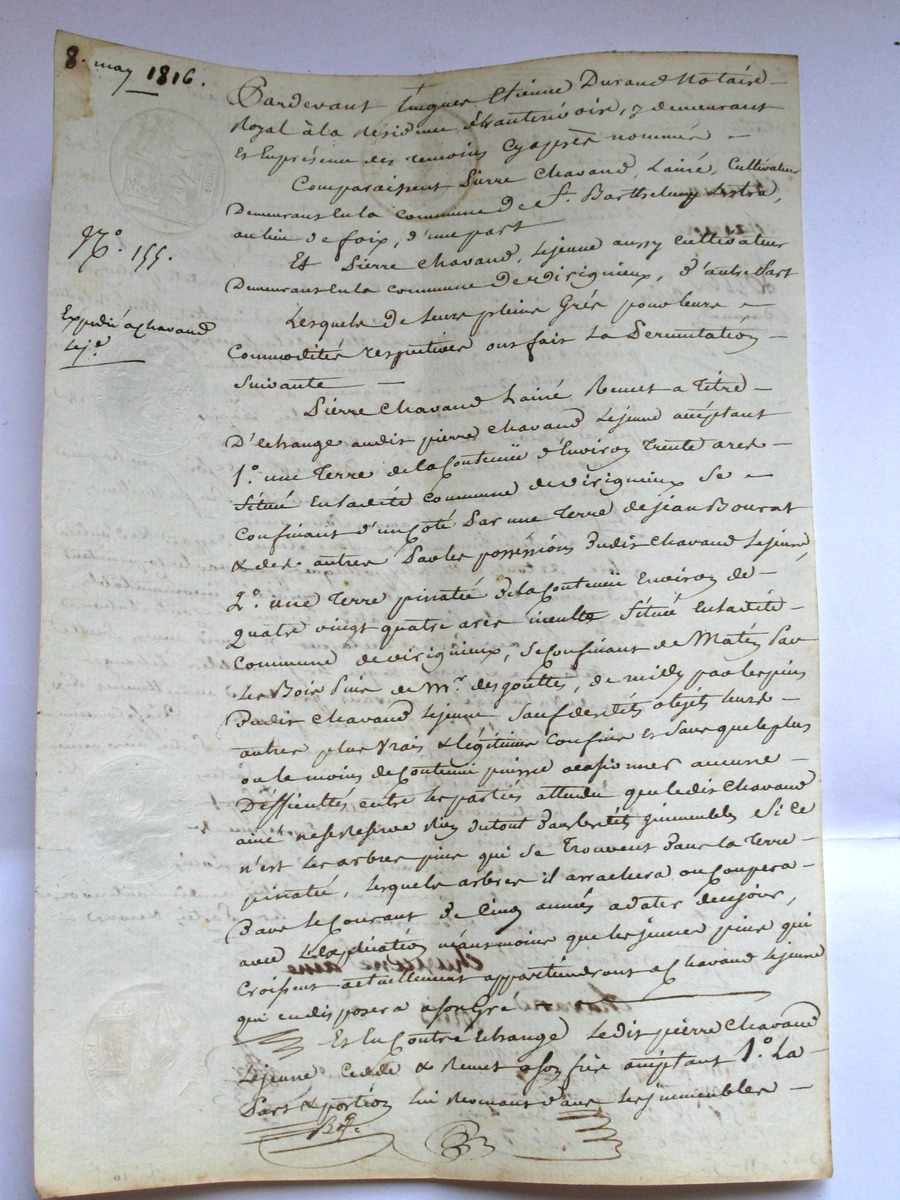 8. may 1816.
Pardevant hugues Etienne Durand Notaire
Royal à la Résidence y demeurant
Et En présence des temoins Cyaprès nommés
Comparaissent Pierre Chavand, Lainé, Cultivateur
Demeurant En la commune De St. Barthelemy Lestra,
au lieu de foix, d'une part
N.o 155.
Et Pierre Chavand, Lejeune aussy Cultivateur
Demeurant En la commune De virignieux, D'autre Part
Expedié a Chavand
Lej.e
Lesquels de leurs pleins Grés pour leurs
Commodités respectives ont fait La Permutation
Suivante
Pierre Chavand Lainé Remet a Titre
D'Echange audit pierre Chavand Lejeune acceptant
1.o une Terre de la Contenüe d'Environ Trente ares
Située En ladite Commune de virigneux Se
Confinant d'un Coté Par une Terre de jean Bourat
& des autres Par les possessions Dudit Chavand Lejeune
2.o une Terre pinatée De la Contenüe Environ de
quatre vingt quatre ares inculte Située En ladite
Commune de virignieux, Se Confinant de Matin Par
Les Bois Pins de Mr. desgouttes, de midy par les pins
Dudit Chavand Lejeune Sauf desdits objets leurs
autres plus Vrais & légitimes Confins Et Sans que le plus
ou le moins de Contenu puisse ocasionner aucune
Difficultés entre les parties attendu que ledit Chavand
ainé ne se Reserve Rien du tout Dans lesdits jmmeubles Si ce
n'est les arbres pins qui Se Trouvent Dans la Terre
pinatée, lesquels arbres il arrachera ou Coupera
Dans le Courant De Cinq années a dater de ce jour,
avec Explication néansmoins que les jeunes pins qui
Croissent actuellement appartiendront a Chavand Lejeune
qui en disposera a son Gré
Et En Contre Echange Ledit pierre Chavand
Lejeune Cedde & Remet a Son frère acceptant 1.o La
Part & portion lui Revenant Dans les jmmeubles